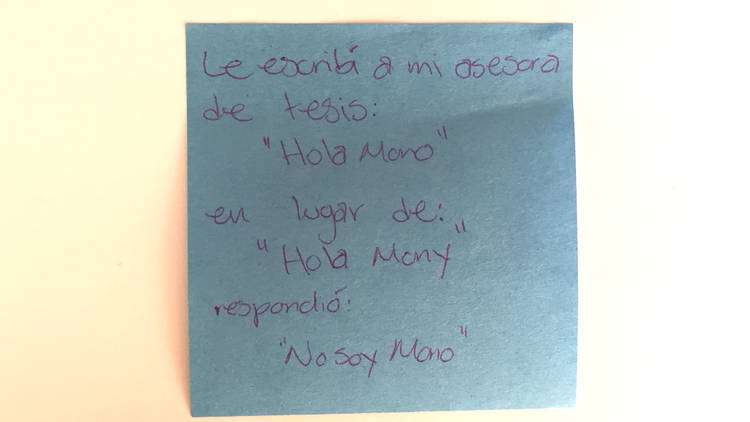 Le escribí a mi asesora
de tesis:
"Hola Mono"
en lugar de:
"Hola Mony"
respondió:
"No soy Mono"